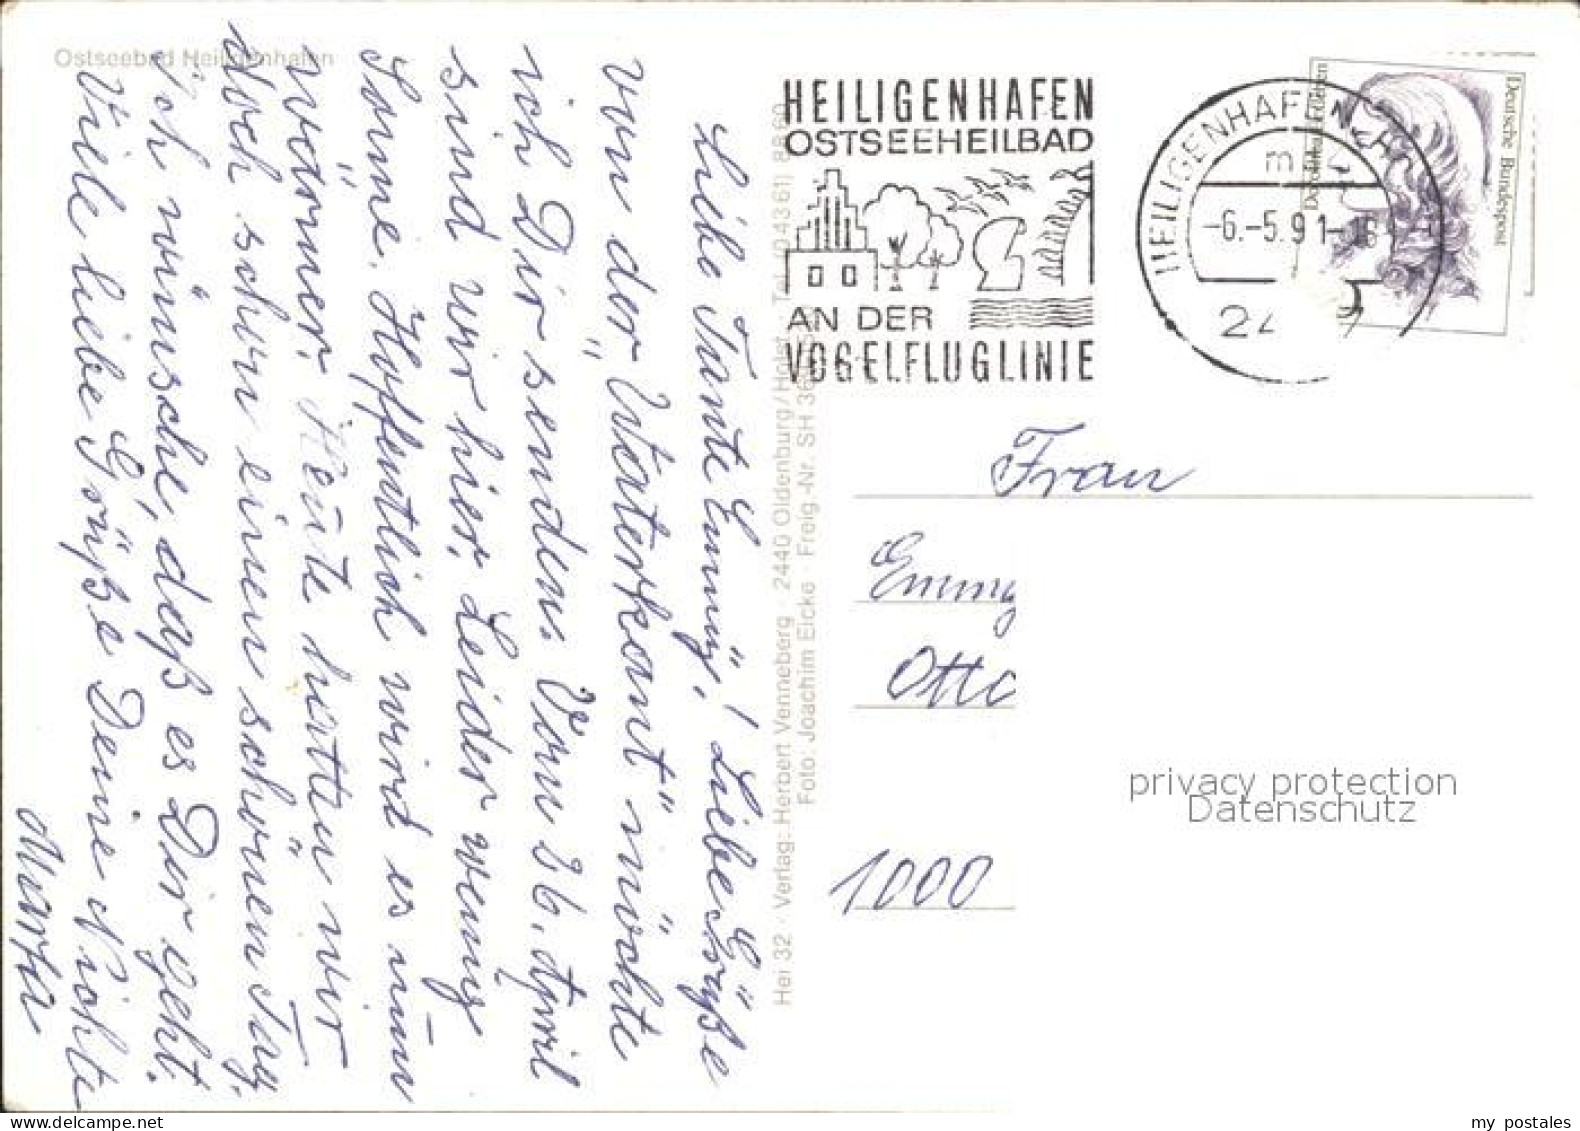 Ostseebad Heiligenhafen
Liebe Tante Emmy! Liebe Grüße
von der "Waterkant" möchte
ich Dir senden. Vom 26. April
sind wir hier. Leider wenig
Sonne. Hoffentlich wird es nun
wärmer. Heute hatten wir
doch schon einen schönen Tag.
Ich wünsche, daß es Dir geht.
Viele liebe Grüße Deine Nichte
Marta
Hei 32 · Verlag: Herbert Venneberg · 2440 Oldenburg/Holst. · Tel. (04361) 8860
Foto: Joachim Eicke · Freig.-Nr. SH
HEILIGENHAFEN
OSTSEEHEILBAD
AN DER
VOGELFLUGLINIE
HEILIGENHAFEN
-6.-5.91-18
Deutsche Bundespost
Frau
Emmy
Otto
1000
privacy protection
Datenschutz
my postales